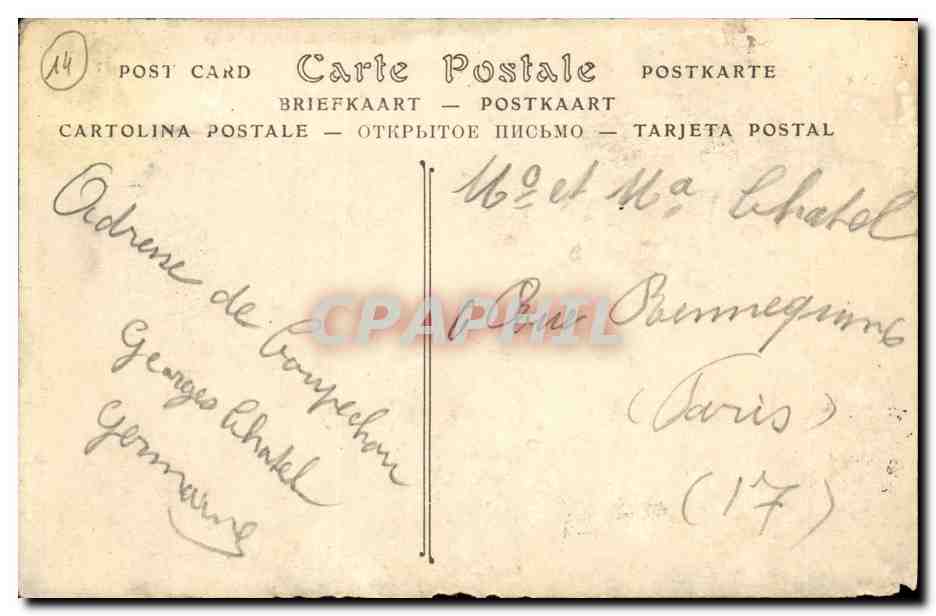 14
POST CARD Carte Postale POSTKARTE
BRIEFKAART — POSTKAART
CARTOLINA POSTALE — ОТКРЫТОЕ ПИСЬМО — TARJETA POSTAL
Adresse de
Georges Chatel
Germaine
Mº et Mª Chatel
6 Rue Rennequin
(Paris)
(17)
CPAPHIL